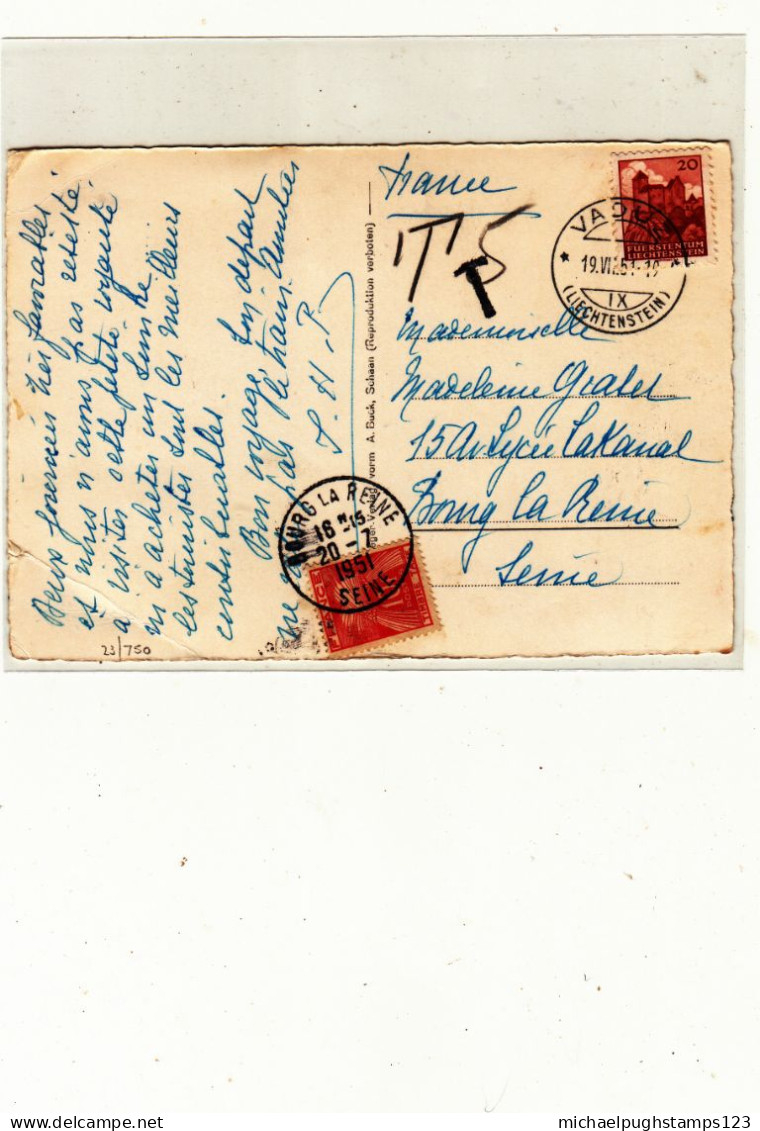 Deux journées très favorables
et nous n'avons pas résisté
à visiter cette petite royauté
M a acheter un
les touristes sont les meilleurs
contribuables.
Bon voyage, bon départ
ne pas le train. Amitiés
J. H. P.
vorm A. Buck, Schaan (Reproduktion verboten)
France
T 5
T
20
FUERSTENTUM
LIECHTENSTEIN
VADUZ
19.VII.51
IX
(LIECHTENSTEIN)
Mademoiselle
Madeleine Grabet
15 Av Lycée Lakanal
Bourg la Reine
Seine
BOURG LA REINE
16 H 15
20 - 7
1951
SEINE
FRANCE
23/750
michaelpughstamps123